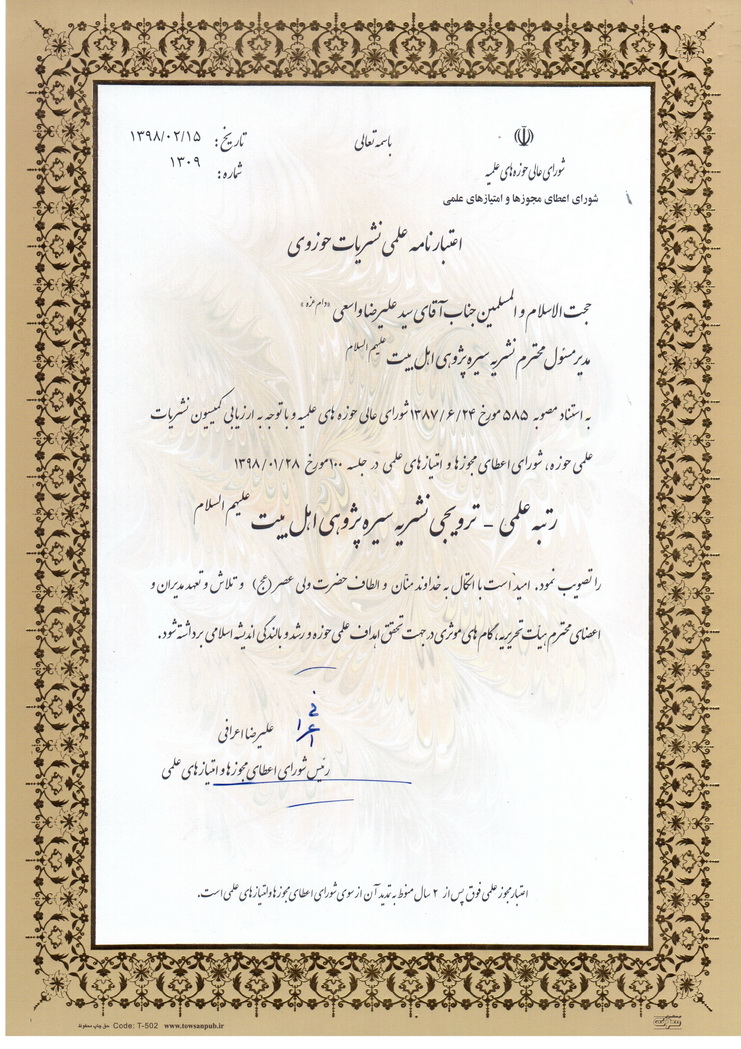 باسمه تعالی
تاریخ: ۱۳۹۸/۰۲/۱۵
شماره: ۱۳۰۹
شورای عالی حوزه های علمیه
شورای اعطای مجوزها و امتیازهای علمی
اعتبارنامه علمی نشریات حوزوی
حجت الاسلام و المسلمین جناب آقای سید علیرضا واسعی «دام عزه»
مدیر مسئول محترم نشریه سیره پژوهی اهل بیت علیهم السلام
به استناد مصوبه ۵۸۵ مورخ ۱۳۸۷/۶/۲۴ شورای عالی حوزه های علمیه و با توجه به ارزیابی کمیسیون نشریات
علمی حوزه، شورای اعطای مجوزها و امتیازهای علمی در جلسه ۱۰۰ مورخ ۱۳۹۸/۰۱/۲۸
رتبه علمی - ترویجی نشریه سیره پژوهی اهل بیت علیهم السلام
را تصویب نمود. امید است با اتکال به خداوند منان و الطاف حضرت ولی عصر (عج) و تلاش و تعهد مدیران و
اعضای محترم هیأت تحریریه، گام های موثری در جهت تحقق اهداف علمی حوزه و رشد و بالندگی اندیشه اسلامی برداشته شود.
علیرضا اعرافی
رئیس شورای اعطای مجوزها و امتیازهای علمی
اعتبار مجوز علمی فوق پس از ۲ سال منوط به تمدید آن از سوی شورای اعطای مجوزها و امتیازهای علمی است.
حق چاپ محفوظ Code: T-502 www.towsanpub.ir